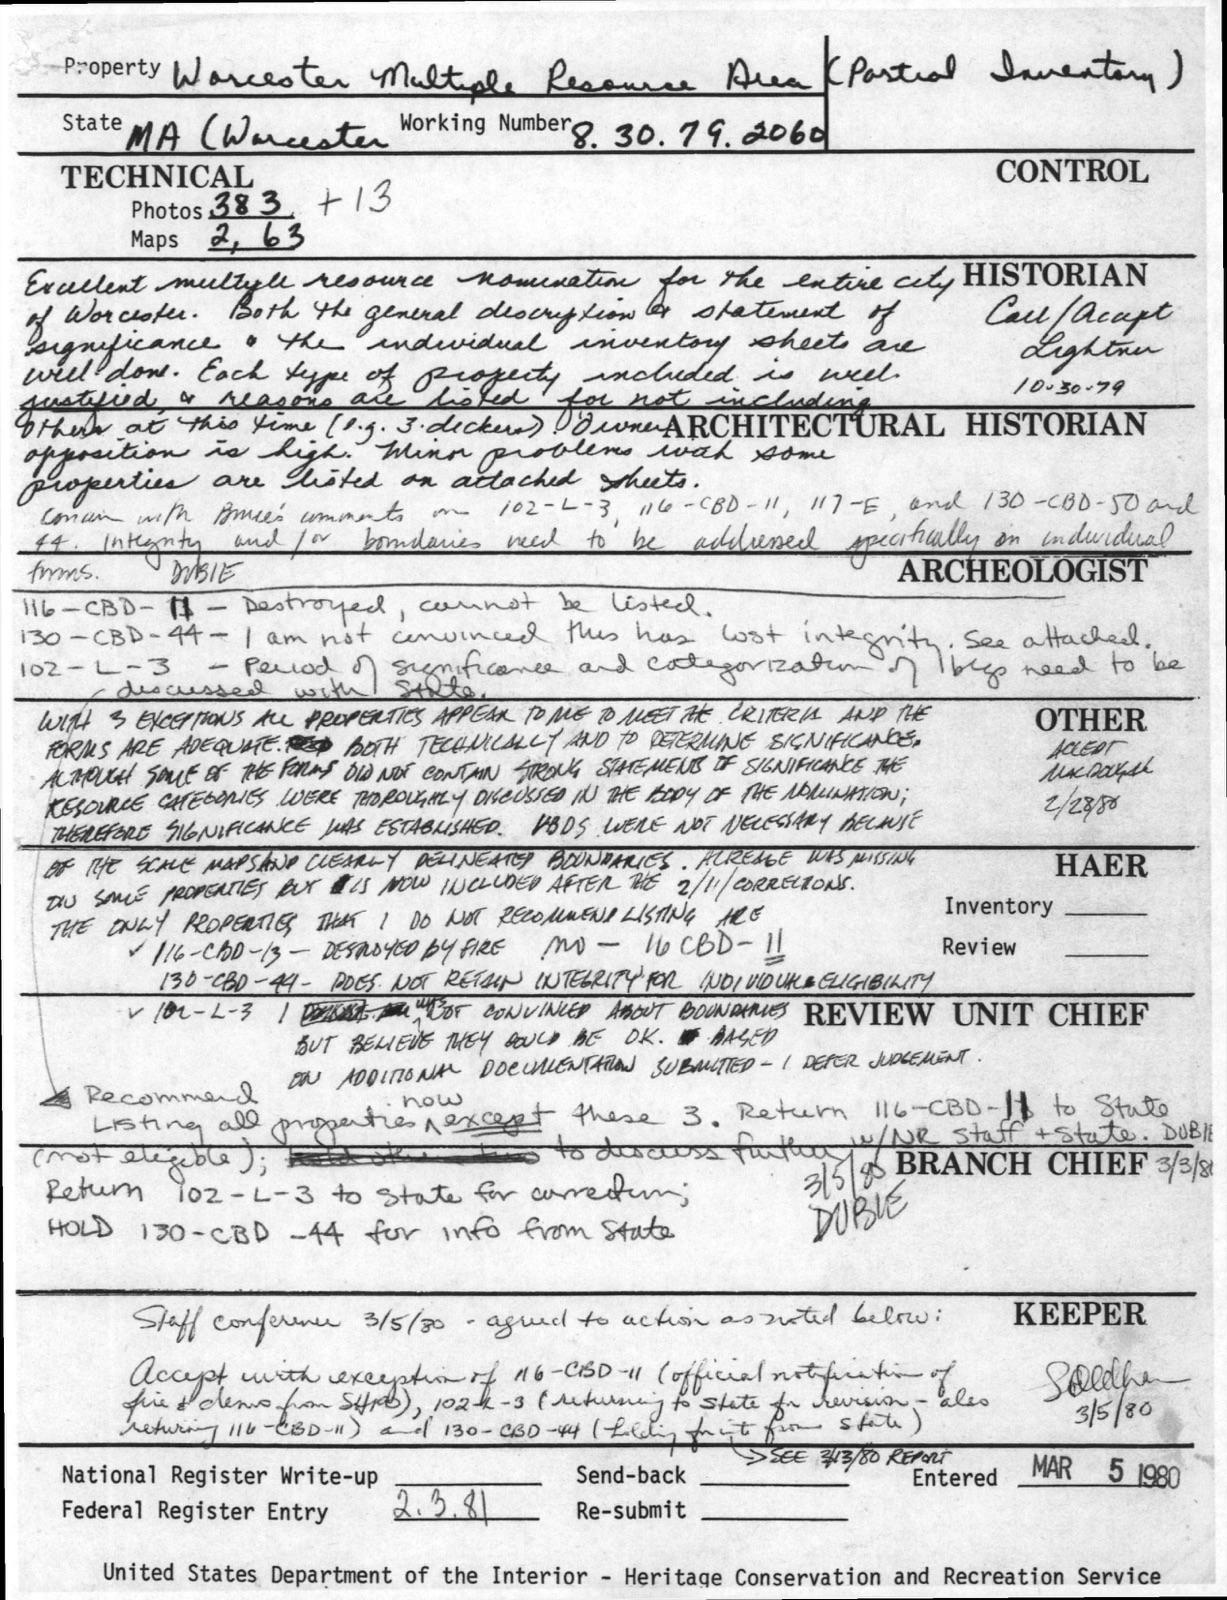 Property Worcester Multiple Resource Area (Partial Inventory)
State MA (Worcester Working Number 8.30.79.2060
TECHNICAL CONTROL
Photos 383 + 13
Maps 2, 63
Excellent multiple resource nomination for the entire city HISTORIAN
of Worcester. Both the general description & statement of Call/Accept
significance & the individual inventory sheets are Lightner
well done. Each type of property included is well 10-30-79
justified, & reasons are listed for not including
others at this time (e.g. 3-deckers). Owner ARCHITECTURAL HISTORIAN
opposition is high. Minor problems with some
properties are listed on attached sheets.
Concur with Bruce's comments on 102-L-3, 116-CBD-11, 117-E, and 130-CBD-50 and
44. Integrity and/or boundaries need to be addressed specifically on individual
forms. DUBIE ARCHEOLOGIST
116-CBD-11 - Destroyed, cannot be listed.
130-CBD-44 - I am not convinced this has lost integrity. See attached.
102-L-3 - Period of significance and categorization of bldgs need to be
discussed with State.
WITH 3 EXCEPTIONS ALL PROPERTIES APPEAR TO ME TO MEET THE CRITERIA AND THE OTHER
FORMS ARE ADEQUATE. BOTH TECHNICALLY AND TO DETERMINE SIGNIFICANCE. ACCEPT
ALTHOUGH SOME OF THE FORMS DID NOT CONTAIN STRONG STATEMENTS OF SIGNIFICANCE THE MACDOUGAL
RESOURCE CATEGORIES WERE THOROUGHLY DISCUSSED IN THE BODY OF THE NOMINATION; 2/28/80
THEREFORE SIGNIFICANCE WAS ESTABLISHED. VBDS WERE NOT NECESSARY BECAUSE
OF THE SCALE MAPS AND CLEARLY DELINEATED BOUNDARIES. ACREAGE WAS MISSING HAER
ON SOME PROPERTIES BUT IS NOW INCLUDED AFTER THE 2/11/ CORRECTIONS.
THE ONLY PROPERTIES THAT I DO NOT RECOMMEND LISTING ARE Inventory
✓ 116-CBD-13 - DESTROYED BY FIRE no - 16 CBD-11 Review
130-CBD-44 - DOES NOT RETAIN INTEGRITY FOR INDIVIDUAL ELIGIBILITY
✓ 102-L-3 I WAS NOT CONVINCED ABOUT BOUNDARIES REVIEW UNIT CHIEF
BUT BELIEVE THEY COULD BE OK. BASED
ON ADDITIONAL DOCUMENTATION SUBMITTED - I DEFER JUDGEMENT.
Recommend now
Listing all properties except these 3. Return 116-CBD-11 to State
(not eligible); to discuss further w/NR staff + State. DUBIE
3/5/80 BRANCH CHIEF 3/3/80
Return 102-L-3 to State for correction; DUBIE
HOLD 130-CBD-44 for info from State
Staff conference 3/5/80 - agreed to action as noted below: KEEPER
Accept with exception of 116-CBD-11 (official notification of
fire & demo from SHPO), 102-L-3 (returning to state for revision - also 3/5/80
returning 116-CBD-11) and 130-CBD-44 (holding for it from state)
SEE 3/13/80 REPORT
National Register Write-up Send-back Entered MAR 5 1980
Federal Register Entry 2.3.81 Re-submit
United States Department of the Interior - Heritage Conservation and Recreation Service